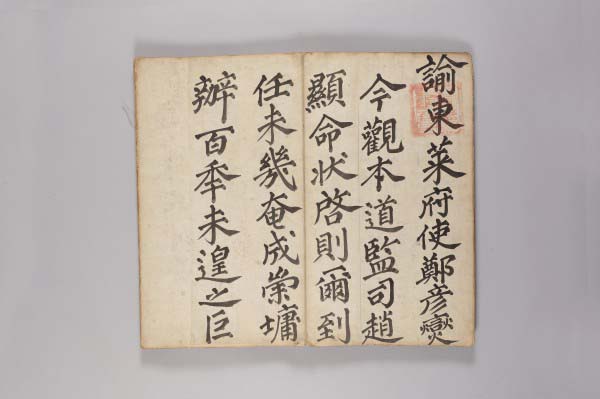 諭東萊府使鄭彦燮
今觀本道監司趙
顯命狀啓則爾到
任未幾奄成崇墉
辦百年未遑之巨